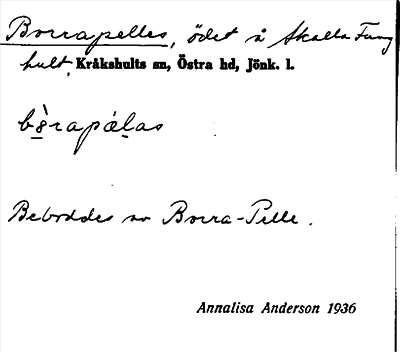 Borrapelles, ödet å Skalla Ljung
hult, Kråkshults sn, Östra hd, Jönk. l.
bòrapälas
Beboddes av Borra-Pelle.
Annalisa Anderson 1936